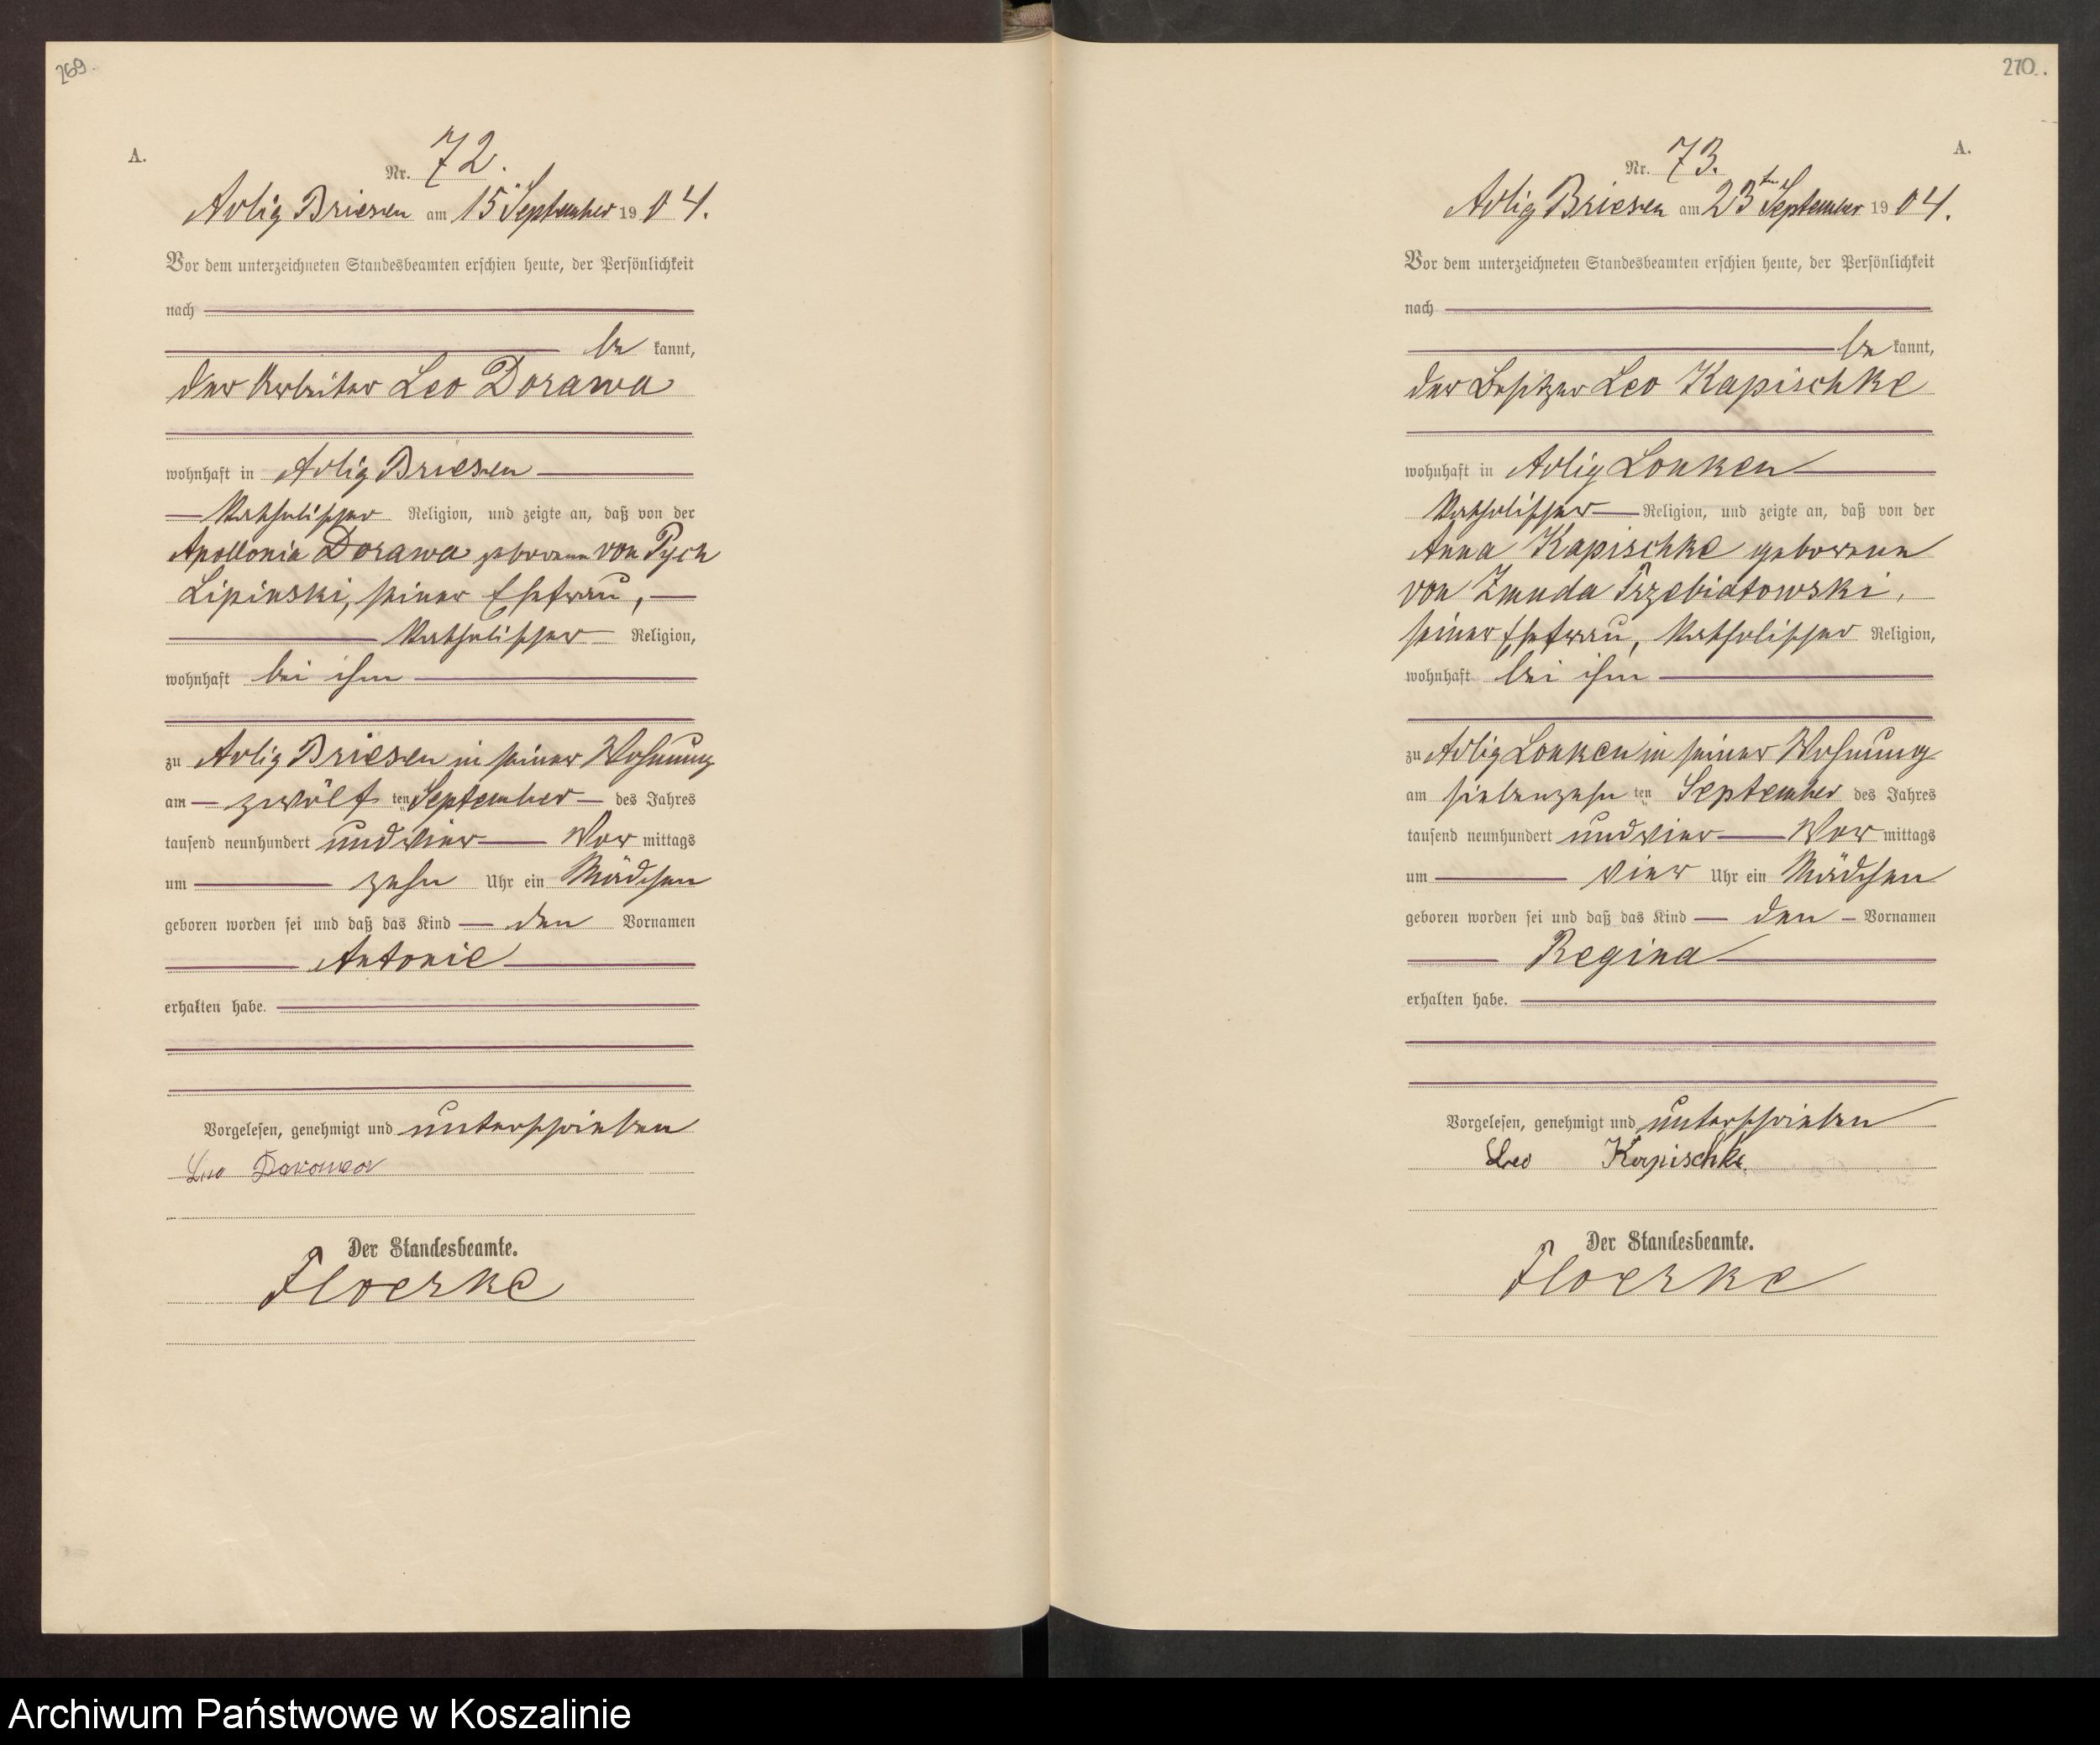 269.
A.
Nr. 72.
Adlig Briesen am 15ten September 1904.
Vor dem unterzeichneten Standesbeamten erschien heute, der Persönlichkeit
nach
be kannt,
der Arbeiter Leo Dorawa
wohnhaft in Adlig Briesen
katholischer Religion, und zeigte an, daß von der
Apollonia Dorawa geborenen von Pych
Lipinski, seiner Ehefrau,
katholischer Religion,
wohnhaft bei ihm
zu Adlig Briesen in seiner Wohnung
am zwölften September des Jahres
tausend neunhundert und vier Vor mittags
um zehn Uhr ein Mädchen
geboren worden sei und daß das Kind den Vornamen
Antonie
erhalten habe.
Vorgelesen, genehmigt und unterschrieben
Leo Dorawa
Der Standesbeamte.
Floerke
270.
A.
Nr. 73.
Adlig Briesen am 23ten September 1904.
Vor dem unterzeichneten Standesbeamten erschien heute, der Persönlichkeit
nach
be kannt,
der Besitzer Leo Kapischke
wohnhaft in Adlig Lonken
katholischer Religion, und zeigte an, daß von der
Anna Kapischke geborenen
von Zmuda Trzebiatowski,
seiner Ehefrau, katholischer Religion,
wohnhaft bei ihm
zu Adlig Lonken in seiner Wohnung
am siebenzehnten September des Jahres
tausend neunhundert und vier Vor mittags
um vier Uhr ein Mädchen
geboren worden sei und daß das Kind den Vornamen
Regina
erhalten habe.
Vorgelesen, genehmigt und unterschrieben
Leo Kapischke
Der Standesbeamte.
Floerke
Archiwum Państwowe w Koszalinie